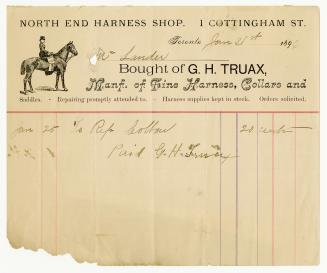 NORTH END HARNESS SHOP. 1 COTTINGHAM ST.
Toronto, Jan 25th 189
Mr Lander
Bought of G. H. TRUAX,
Manf. of Fine Harness, Collars and
Saddles. - Repairing promptly attended to. - Harness supplies kept in stock. Orders solicited.
Jan 25 To Rep Collar 20 cents
Paid G. H. Truax